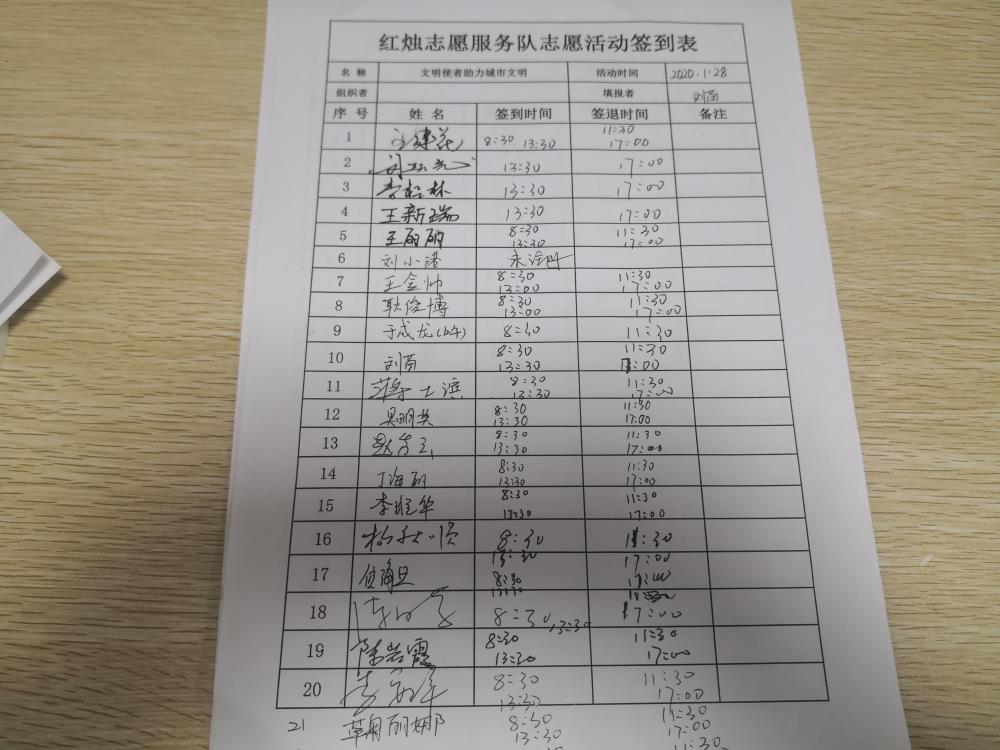 红烛志愿服务队志愿活动签到表
名 称 文明使者助力城市文明 活动时间 2020.1.28
组织者 填报者 刘苗
序 号 姓 名 签到时间 签退时间 备注
1 8:30 13:30 11:30 17:00
2 13:30 17:00
3 李桂林 13:30 17:00
4 王新瑞 13:30 17:00
5 王丽丽 8:30 13:30 11:30 17:00
6 刘小港 未注册
7 王金帅 8:30 13:00 11:30 17:00
8 耿俊博 8:30 13:00 11:30 17:00
9 于成龙(64) 8:30 11:30
10 刘苗 8:30 13:30 11:30 17:00
11 士滨 8:30 13:30 11:30 17:00
12 吴明英 8:30 13:30 11:30 17:00
13 8:30 13:30 11:30 17:00
14 丁海丽 8:30 13:30 11:30 17:00
15 8:30 13:30 11:30 17:00
16 8:30 13:30 11:30 17:00
17 8:30 13:30
18 8:30 13:30 17:00
19 陈岩霞 8:30 13:30 11:30 17:00
20 8:30 13:30 11:30 17:00
21 8:30 13:30 11:30 17:00
11:30